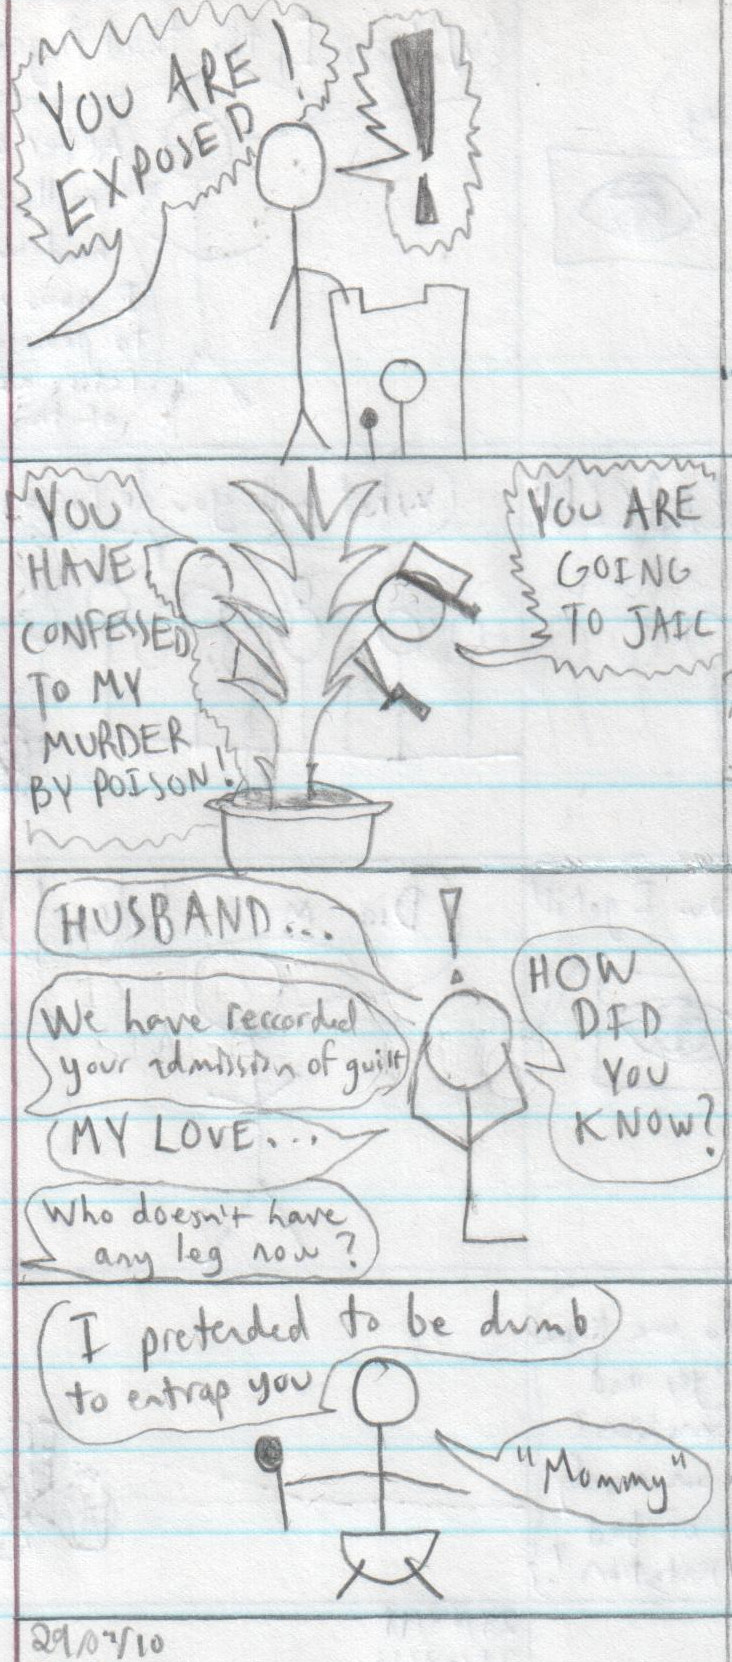 YOU ARE!
EXPOSED
!
YOU
HAVE
CONFESSED
TO MY
MURDER
BY POISON!
YOU ARE
GOING
TO JAIL
HUSBAND...
We have reccorded
your admission of guilt
MY LOVE...
Who doesn't have
any leg now?
!
HOW
DID
YOU
KNOW?
I pretended to be dumb
to entrap you
"Mommy"